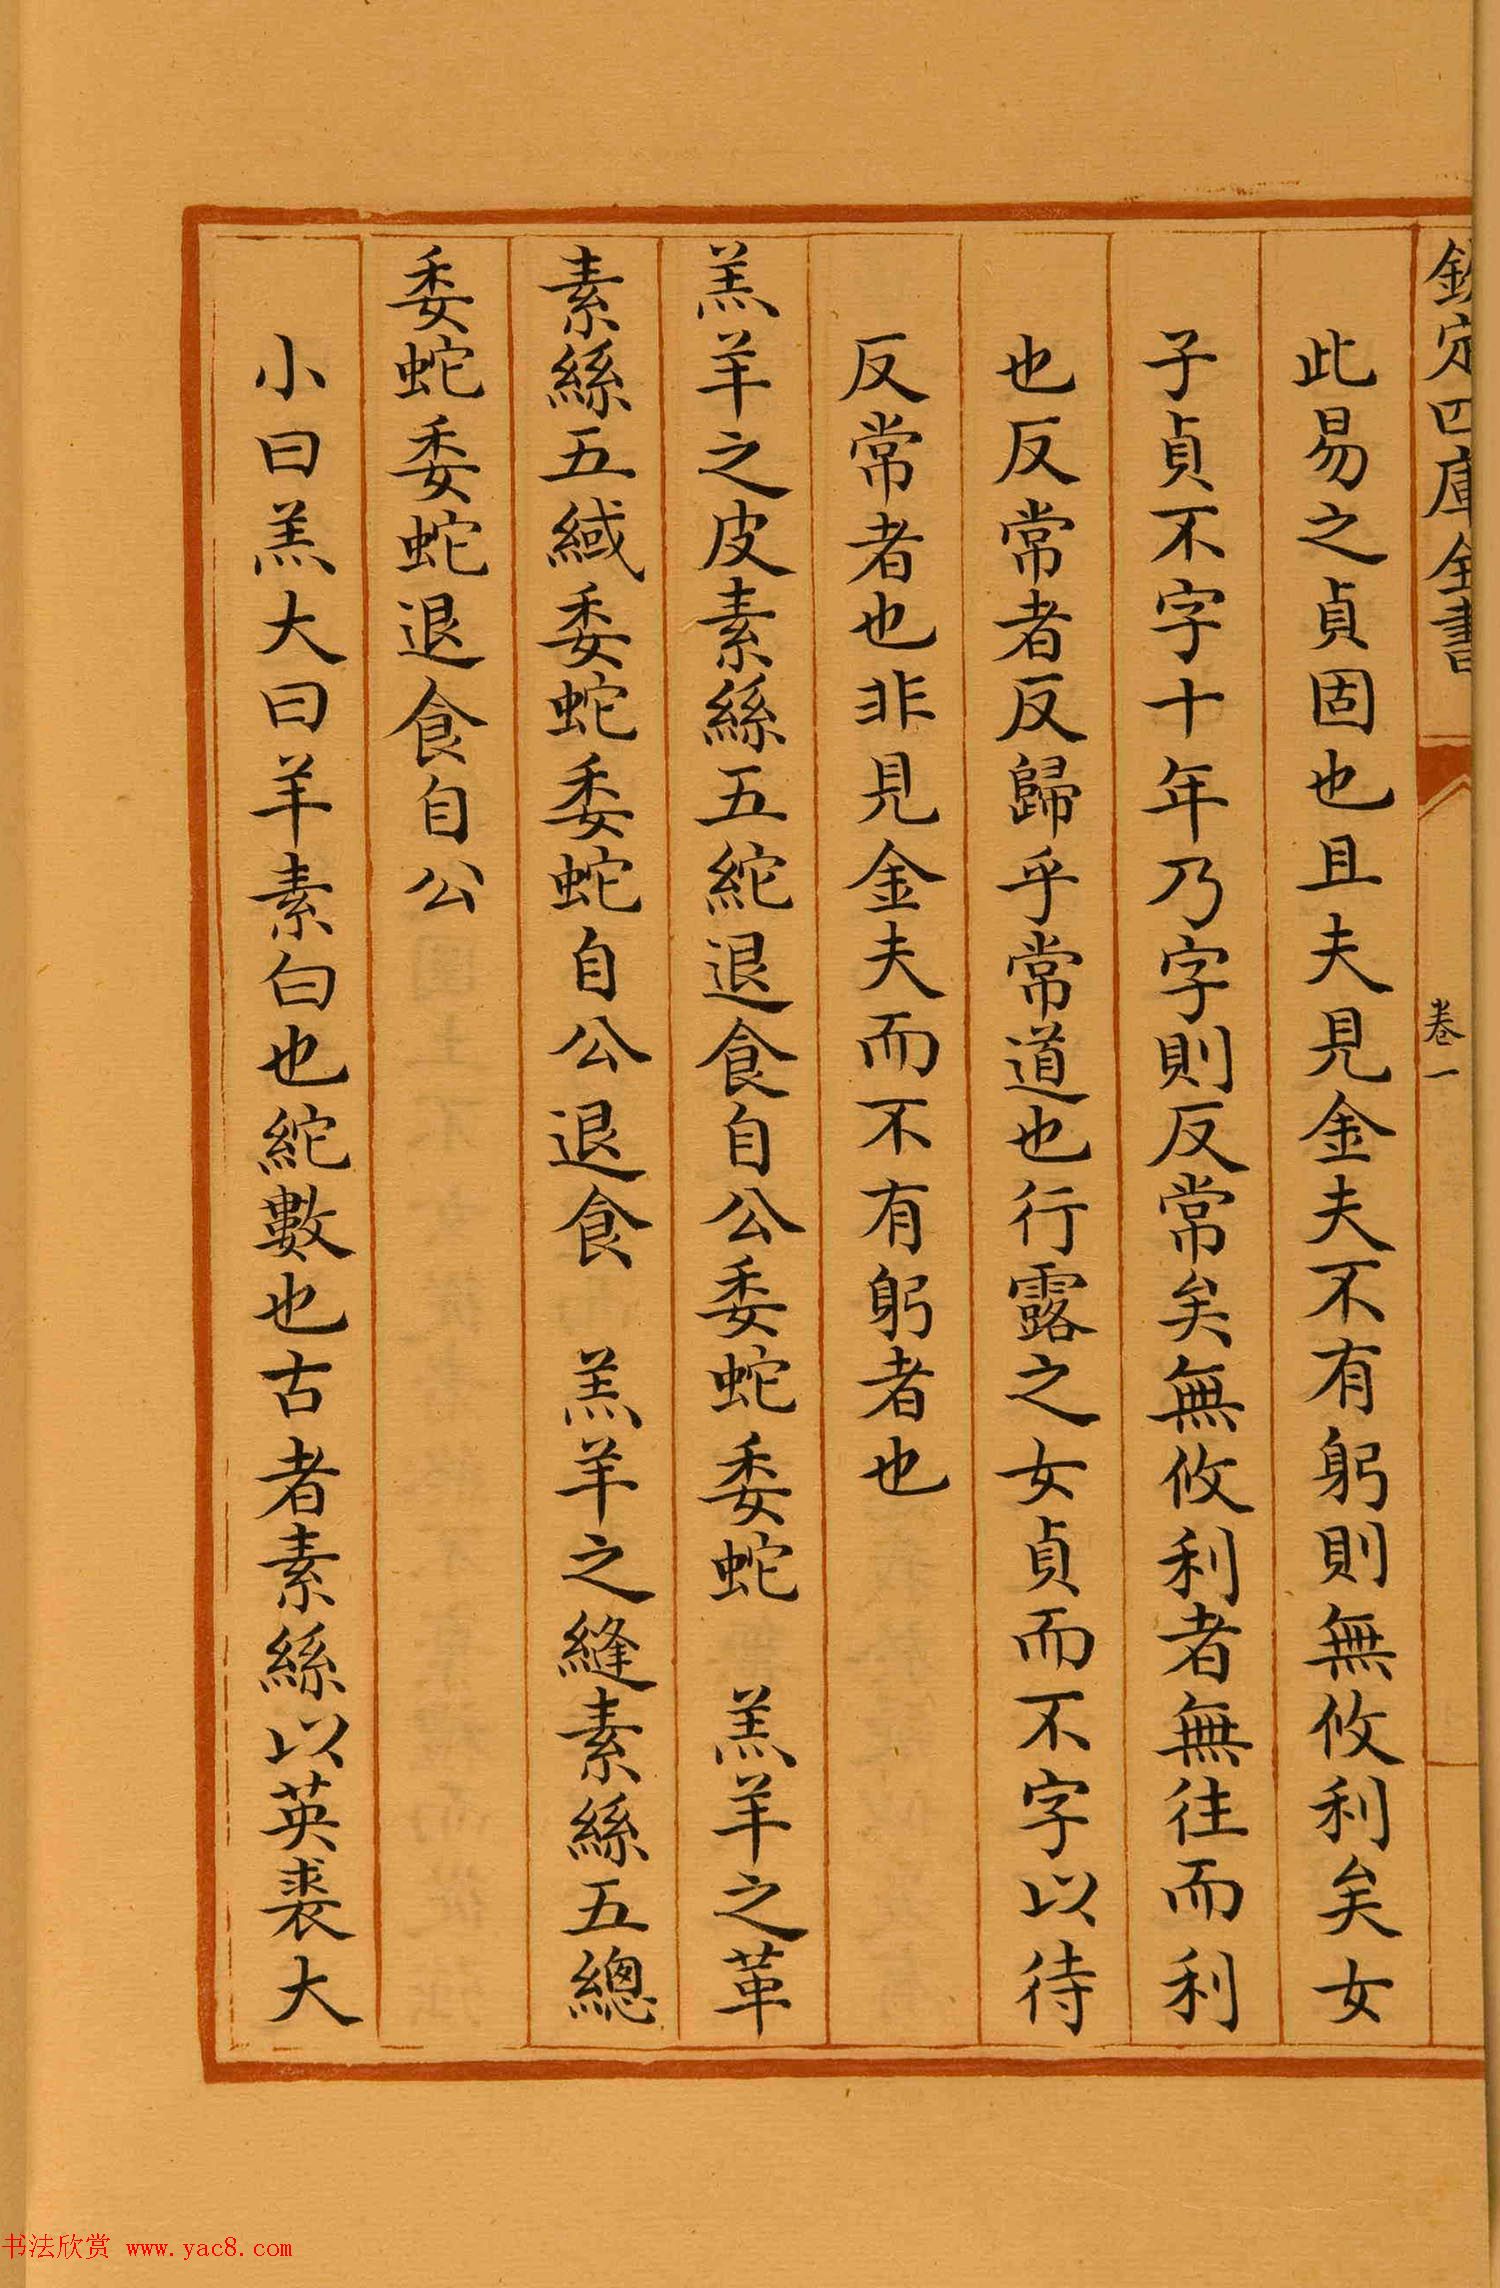 欽定四庫全書
卷一
此易之貞固也且夫見金夫不有躬則無攸利矣女
子貞不字十年乃字則反常矣無攸利者無往而利
也反常者反歸乎常道也行露之女貞而不字以待
反常者也非見金夫而不有躬者也
羔羊之皮素絲五紽退食自公委蛇委蛇 羔羊之革
素絲五緎委蛇委蛇自公退食 羔羊之縫素絲五總
委蛇委蛇退食自公
小曰羔大曰羊素白也紽數也古者素絲以英裘大
书法欣赏 www.yac8.com